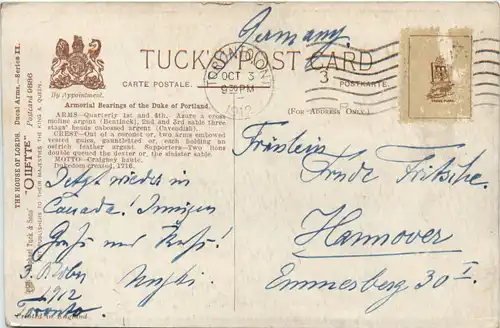 Germany.
TUCK'S POST CARD
CARTE POSTALE.
POSTKARTE.
By Appointment.
(FOR ADDRESS ONLY.)
TORONTO, ONT.
OCT 3
9 PM
1912
3
THE HOUSE OF LORDS. Ducal Arms.—Series II.
"OILETTE" Postcard 9896
Raphael Tuck & Sons'
ART PUBLISHERS TO THEIR MAJESTIES THE KING & QUEEN.
Armorial Bearings of the Duke of Portland.
ARMS—Quarterly 1st and 4th, Azure a cross
moline argent (Bentinck), 2nd and 3rd sable three
stags' heads cabossed argent (Cavendish).
CREST—Out of a coronet two arms embowed
vested gules, gauntletted or, each holding an
ostrich feather argent. Supporters—Two lions
double queued the dexter or, the sinister sable.
MOTTO—Craignez honte.
Dukedom created, 1716.
Jetzt wieder in
Canada! Innigen
Gruß und Kuß!
3. Oktober
1912
Toronto.
Printed in England
Fräulein
Trude Fritsche.
Hannover
Emmesberg 30 I.